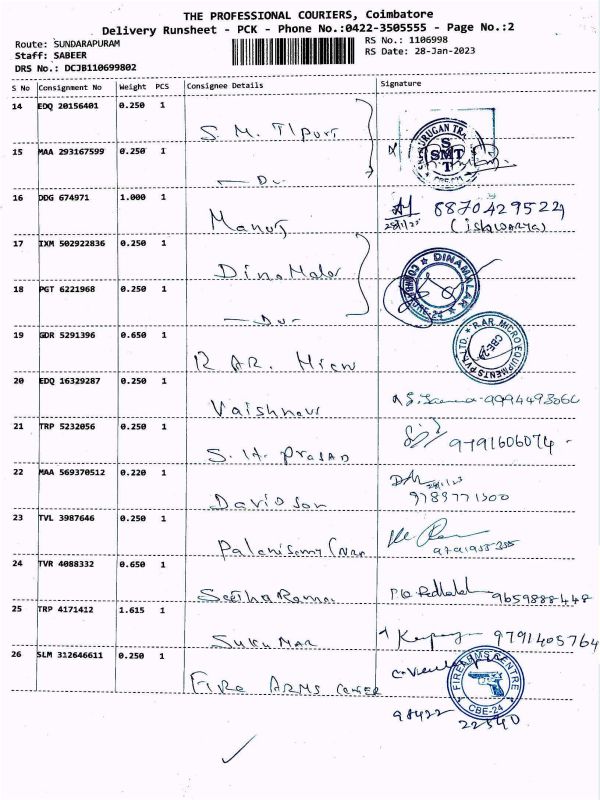 THE PROFESSIONAL COURIERS, Coimbatore
Delivery Runsheet - PCK - Phone No.:0422-3505555 - Page No.:2
Route: SUNDARAPURAM
RS No.: 1106998
Staff: SABEER
RS Date: 28-Jan-2023
DRS No.: DCJB110699802
S No Consignment No Weight PCS Consignee Details Signature
14 EDQ 20156401 0.250 1 S. M. T/Port
SMT
15 MAA 293167599 0.250 1 — Do -
16 DDG 674971 1.000 1 Manoj 8870429522
(ishwarya)
17 IXM 502922836 0.250 1 DinaMalar
DINAMALAR
18 PGT 6221968 0.250 1 — Do -
CBE-24
19 GDR 5291396 0.650 1 R. AR. Micro
R.AR. MICRO EQUIPMENTS PVT. LTD.
20 EDQ 16329287 0.250 1 Vaishnavi
21 TRP 5232056 0.250 1 S. H. Prasad 9791606074
22 MAA 569370512 0.220 1 Davidson 9789771500
23 TVL 3987646 0.250 1
24 TVR 4088332 0.650 1 9659888448
25 TRP 4171412 1.615 1 SUKUMAR 9791405764
26 SLM 312646611 0.250 1 FIRE ARMS
FIREARMS CENTRE
CBE-24
98422
22540